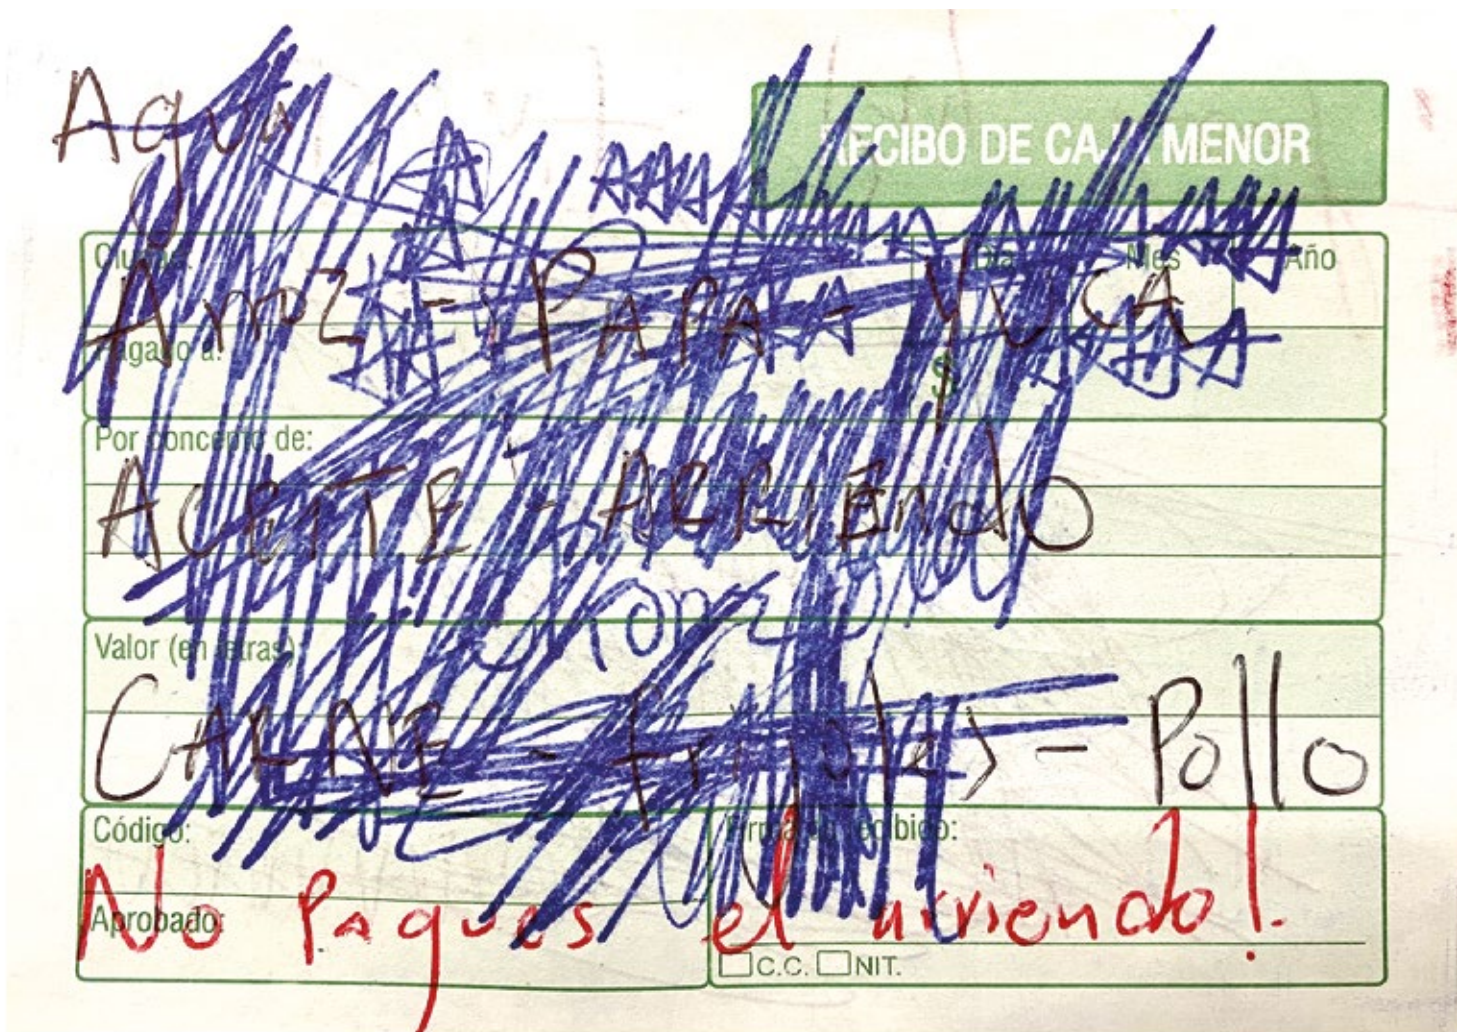 Agua
RECIBO DE CAJA MENOR
Ciudad: Día Mes Año
Arroz - PAPA - YUCA
Pagado a: $
Por concepto de:
ACEITE - ARRIEndO
Valor (en letras)
CARNE - frijoles - Pollo
Código: Firma de recibido:
No Pagues el arriendo!.
Aprobado:
C.C. NIT.